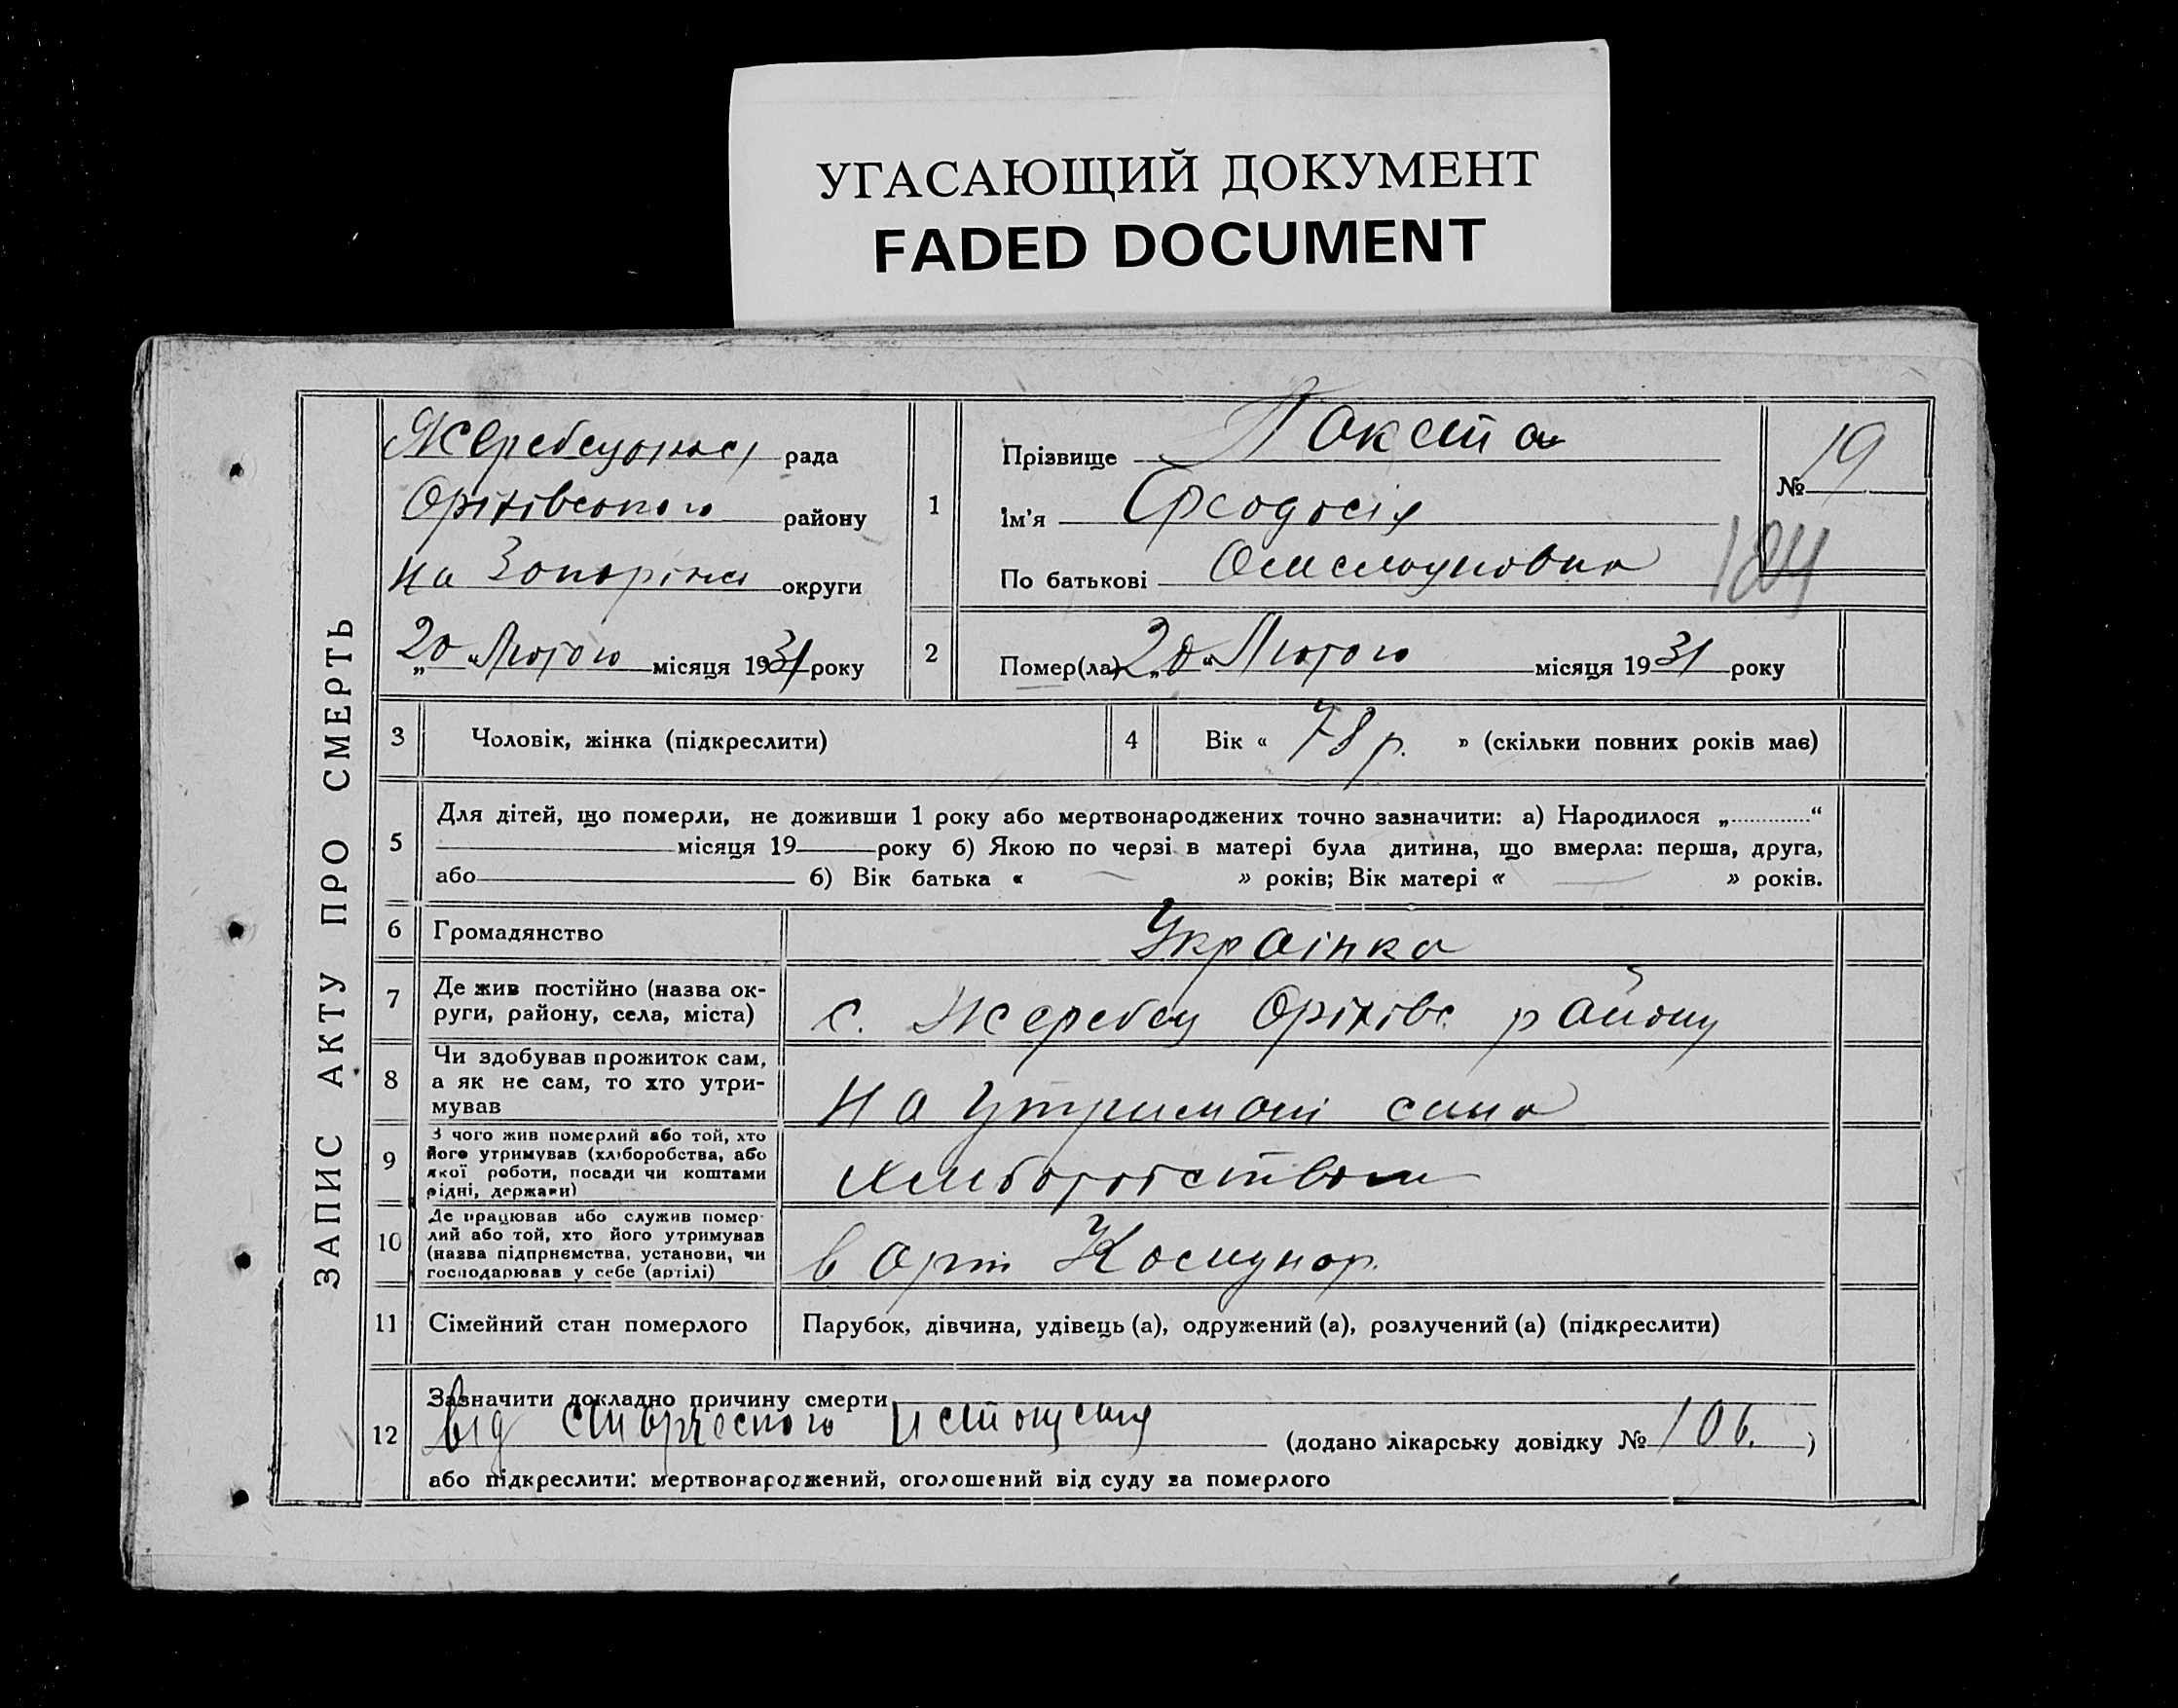 УГАСАЮЩИЙ ДОКУМЕНТ
FADED DOCUMENT
ЗАПИС АКТУ ПРО СМЕРТЬ
рада
Оріхівського району
на округи
„20“ Лютого місяця 1931 року
1
Прізвище
Ім'я Феодосія
По батькові
№ 19
184
2
Помер(ла) „20“ Лютого місяця 1931 року
3 Чоловік, жінка (підкреслити)
4 Вік « 78 р. » (скільки повних років має)
5
Для дітей, що померли, не доживши 1 року або мертвонароджених точно зазначити: а) Народилося „ “
місяця 19 року б) Якою по черзі в матері була дитина, що вмерла: перша, друга,
або б) Вік батька « » років; Вік матері « » років.
6 Громадянство Українка
7 Де жив постійно (назва ок-
руги, району, села, міста)
с. Жеребец Оріхівс. району
8 Чи здобував прожиток сам,
а як не сам, то хто утри-
мував
на утримані сина
9 З чого жив померлий або той, хто
його утримував (хліборобства, або
якої роботи, посади чи коштами
рідні, держави)
хлиборобством
10 Де працював або служив помер-
лий або той, хто його утримував
(назва підприємства, установи, чи
господарював у себе (артілі)
в арт
11 Сімейний стан померлого Парубок, дівчина, удівець (а), одружений (а), розлучений (а) (підкреслити)
12
Зазначити докладно причину смерти
від старческого истощения (додано лікарську довідку № 106. )
або підкреслити: мертвонароджений, оголошений від суду за померлого